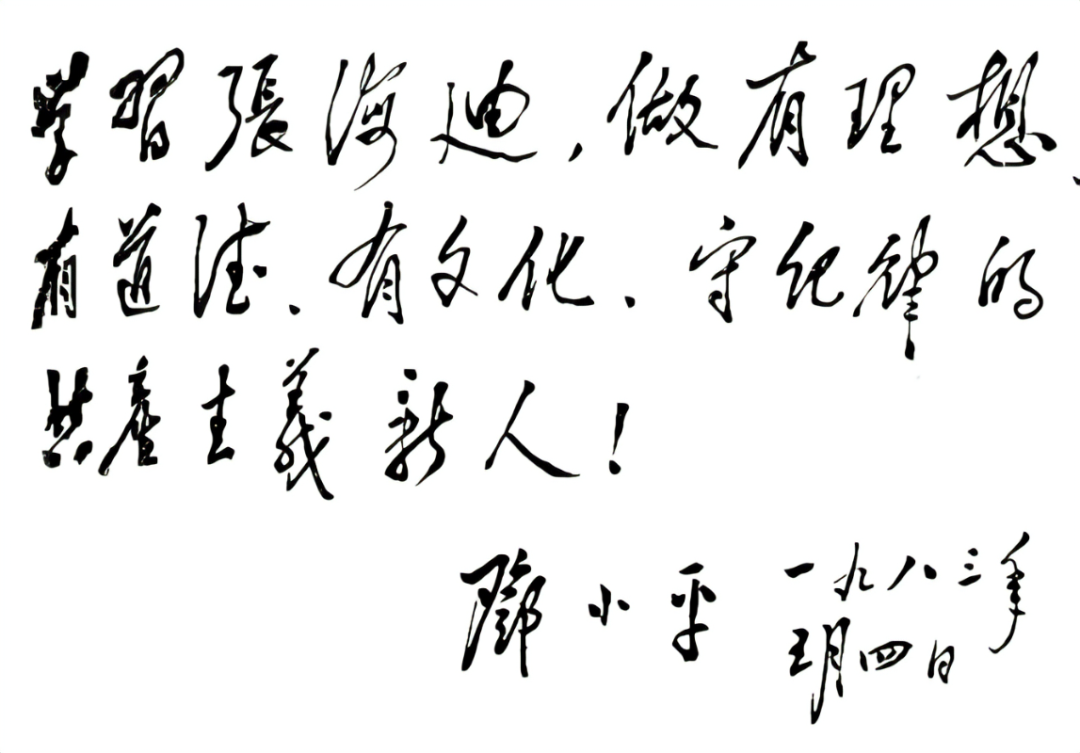 学習張海迪，做有理想、
有道德、有文化、守纪律的
共產主義新人！
鄧小平 一九八三年
五月四日